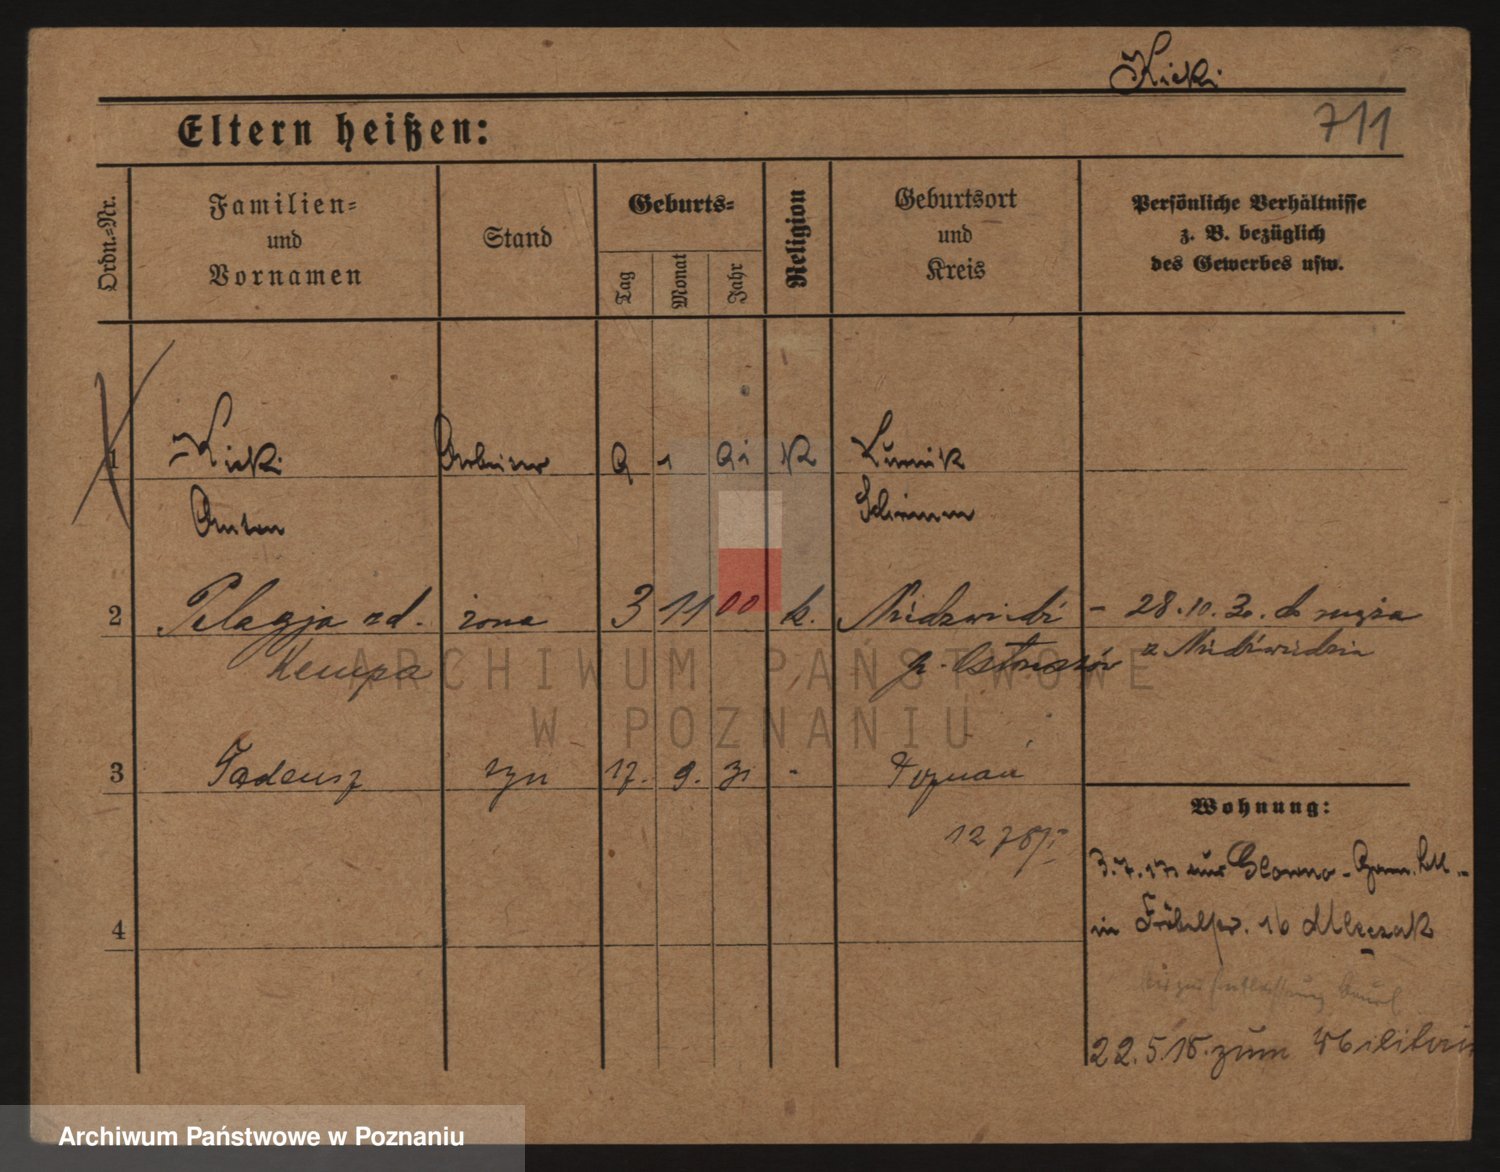 Kicki
Eltern heißen:
711
Ordn.-Nr.
Familien-
und
Vornamen
Stand
Geburts-
Tag
Monat
Jahr
Religion
Geburtsort
und
Kreis
Persönliche Verhältnisse
z. B. bezüglich
des Gewerbes usw.
1 Kicki Arbeiter 9 1 91 K
Anton Schrimm
2 Pelagja zd. żona 3 11 00 k. - 28.10.30. do męża
Kempa p. Ostrzeszów
ARCHIWUM PAŃSTWOWE
W POZNANIU
3 Tadeusz syn 17. 9. 31 - Poznań
Wohnung:
3.7.17
4
in 16 Mleczak
22.5.18. zum Militair
Archiwum Państwowe w Poznaniu